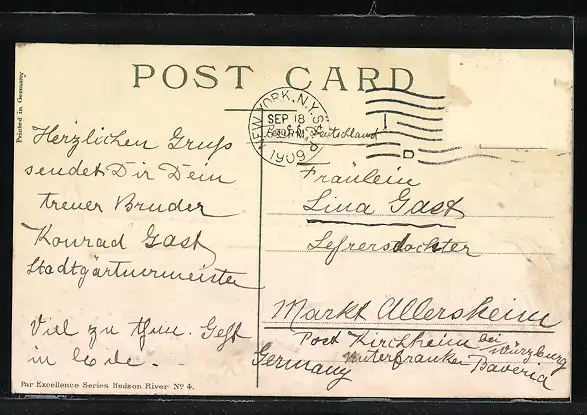 Printed in Germany
POST CARD
NEW YORK, N.Y. STA.
SEP 18
1909
D
Deutschland
Herzlichen Gruss
sendet Dir Dein
treuer Bruder
Konrad Gast
Stadtgärtnermeister
Viel zu thun. Geht
in
Fräulein
Lina Gast
Lehrerstochter
Markt Allersheim
Post Kirchheim bei Würzburg
Unterfranken Bavaria
Germany
Par Excellence Series Hudson River No 4.